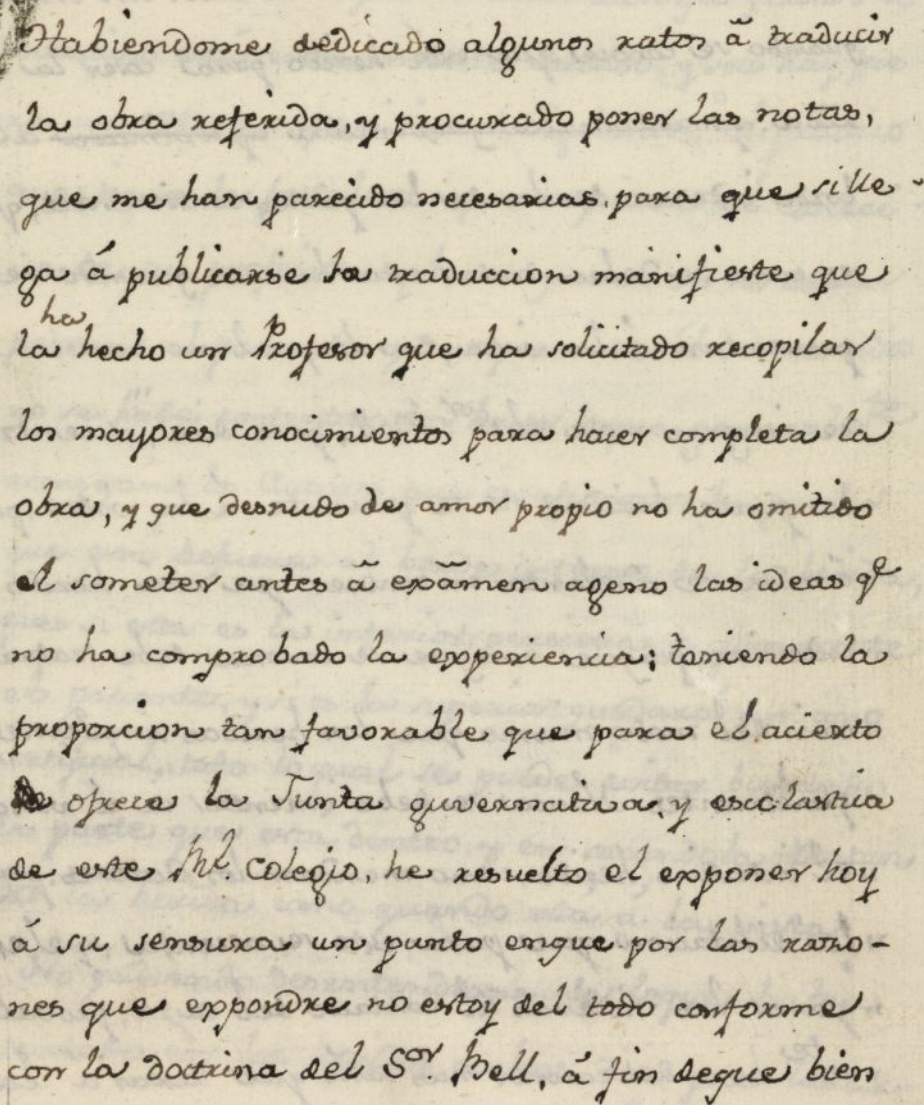 Habiendome dedicado algunos ratos ã traducir
la obra referida, y procurado poner las notas,
que me han parecido necesarias, para que si lle-
ga á publicarse la traduccion manifieste que
ha
la hecho un Profesor que ha solicitado recopilar
los mayores conocimientos para hacer completa la
obra, y que desnudo de amor propio no ha omitido
el someter antes ã exãmen ageno las ideas qe
no ha comprobado la experiencia; teniendo la
proporcion tan favorable que para el acierto
ofrece la Junta guvernativa, y escolastica
de este Rl. Colegio, he resuelto el exponer hoy
á su sensura un punto enque por las razo-
nes que expondre no estoy del todo conforme
con la doctrina del Sor. Bell, á fin deque bien